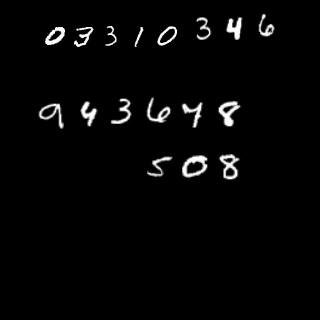 03310346
943648
508